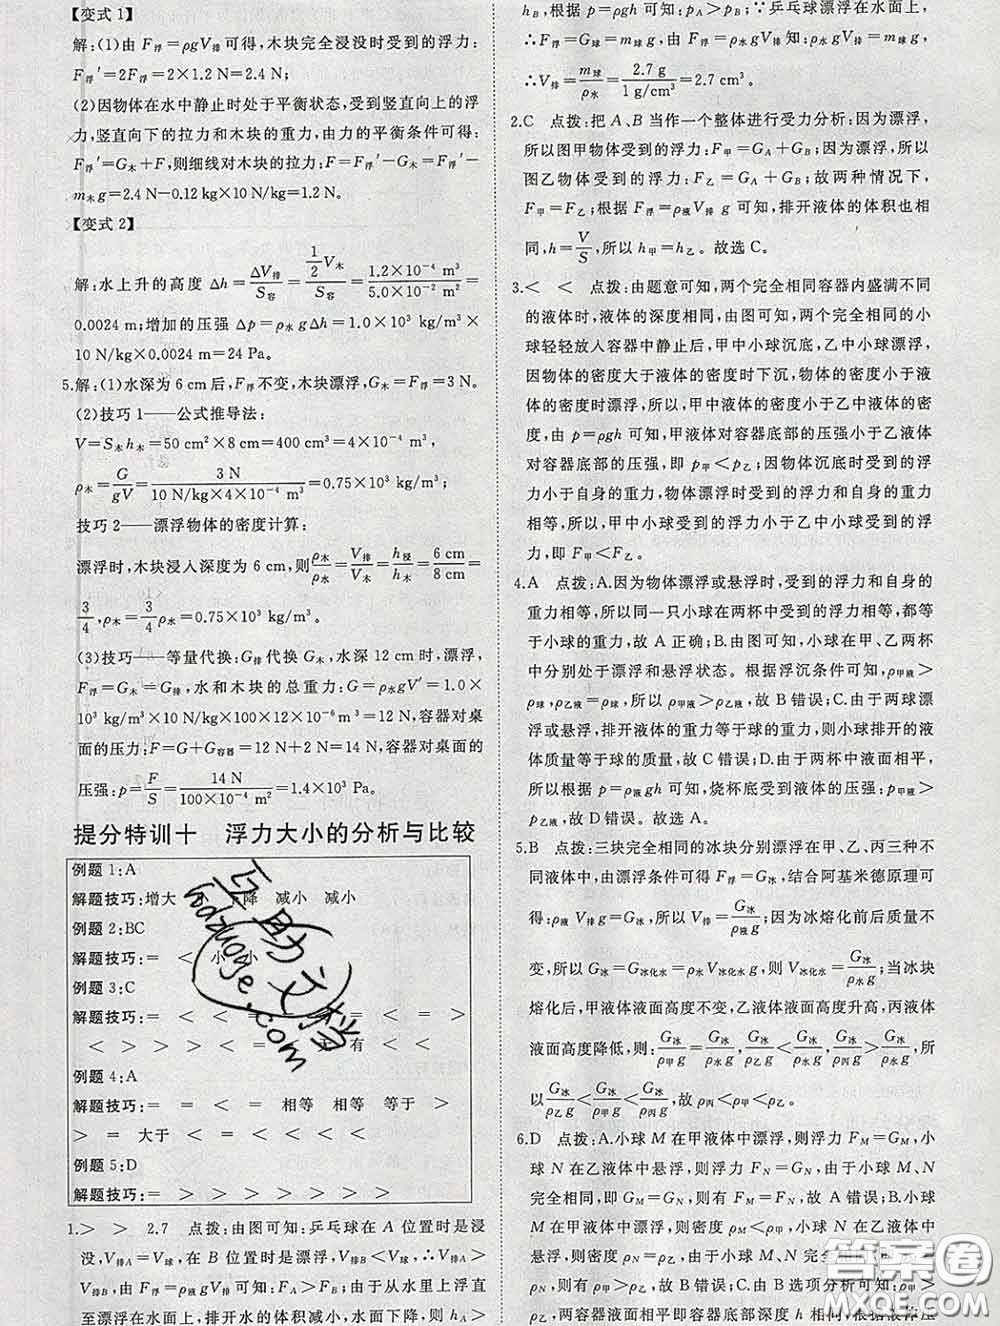 【变式 1】
解:(1)由 F浮=ρgV排 可得,木块完全浸没时的浮力:
F浮′=2F浮=2×1.2 N=2.4 N;
(2)因物体在水中静止时处于平衡状态,受到竖直向上的浮
力,竖直向下的拉力和木块的重力,由力的平衡条件可得:
F浮′=G木+F,则细线对木块的拉力:F=F浮′-G木=F浮′-
m木g=2.4 N-0.12 kg×10 N/kg=1.2 N。
【变式 2】
解:水上升的高度 Δh=ΔV排/S容=½V木/S容=1.2×10⁻⁴ m³/5.0×10⁻² m²=
0.0024 m;增加的压强 Δp=ρ水gΔh=1.0×10³ kg/m³×
10 N/kg×0.0024 m=24 Pa。
5.解:(1)水深为 6 cm 后,F浮不变,木块漂浮,G木=F浮=3 N。
(2)技巧 1——公式推导法:
V=S木h木=50 cm²×8 cm=400 cm³=4×10⁻⁴ m³,
ρ木=G/gV=3 N/10 N/kg×4×10⁻⁴ m³=0.75×10³ kg/m³
技巧 2——漂浮物体的密度计算:
漂浮时,木块浸入深度为 6cm,则ρ木/ρ水=V排/V木=h浸/h木=6 cm/8 cm=
3/4,ρ木=3/4ρ水=0.75×10³ kg/m³
(3)技巧——等量代换:G排代换 G木,水深 12 cm 时,漂浮,
F浮=G木=G排,水和木块的总重力:G=ρ水gV′=1.0×
10³ kg/m³×10 N/kg×100×12×10⁻⁶m³=12 N,容器对桌
面的压力:F=G+G容器=12 N+2 N=14 N,容器对桌面的
压强:p=F/S=14 N/100×10⁻⁴ m²=1.4×10³ Pa。
提分特训十 浮力大小的分析与比较
例题 1:A
解题技巧:增大 降 减小 减小
例题 2:BC
解题技巧:= < 小 小
例题 3:C
解题技巧:= = < < = < = >
< > > > < < 有 < <
例题 4:A
解题技巧:= = < = 相等 相等 等于 >
> = 大于 < = < < < <
例题 5:D
解题技巧:= > > > > > > >
1.> > 2.7 点拨:由图可知:乒乓球在 A 位置时是浸
没,V排A=V球,在 B 位置时是漂浮,V排B<V球,∴V排A>
V排B,由 F浮=ρ液gV排可知:FA>FB;由于从水里上浮直
至漂浮在水面上,排开水的体积减小,水面下降,则 hA>
hB,根据 p=ρgh 可知:pA>pB;∵乒乓球漂浮在水面上,
∴F浮=G球=m球g,由 F浮=ρ水gV排知:ρ水gV排=m球g,
∴V排=m球/ρ水=2.7 g/1 g/cm³=2.7 cm³。
2.C 点拨:把 A、B 当作一个整体进行受力分析:因为漂浮,
所以图甲物体受到的浮力:F甲=GA+GB;因为漂浮,所以
图乙物体受到的浮力:F乙=GA+GB;故两种情况下,
F甲=F乙;根据 F浮=ρ液V排g 可知,排开液体的体积也相
同,h=V/S,所以 h甲=h乙。故选 C。
3.< < 点拨:由题意可知,两个完全相同容器内盛满不同
的液体时,液体的深度相同,由图可知,两个完全相同的小
球轻轻放入容器中静止后,甲中小球沉底,乙中小球漂浮,
因物体的密度大于液体的密度时下沉,物体的密度小于液
体的密度时漂浮,所以,甲中液体的密度小于乙中液体的密
度,由 p=ρgh 可知,甲液体对容器底部的压强小于乙液体
对容器底部的压强,即 p甲<p乙;因物体沉底时受到的浮力
小于自身的重力,物体漂浮时受到的浮力和自身的重力
相等,所以,甲中小球受到的浮力小于乙中小球受到的浮
力,即 F甲<F乙。
4.A 点拨:A.因为物体漂浮或悬浮时,受到的浮力和自身的
重力相等,所以同一只小球在两杯中受到的浮力相等,都等
于小球的重力,故 A 正确;B.由图可知,小球在甲、乙两杯
中分别处于漂浮和悬浮状态。根据浮沉条件可知,ρ甲液>
ρ球,ρ乙液=ρ球,所以 ρ甲液>ρ乙液,故 B 错误;C.由于两球漂
浮或悬浮,排开液体的重力等于球的重力,则小球排开的液
体质量等于球的质量,故 C 错误;D.由于两杯中液面相平,
所以根据 p=ρ液gh 可知,烧杯底受到液体的压强 p甲液>
p乙液,故 D 错误。故选 A。
5.B 点拨:三块完全相同的冰块分别漂浮在甲、乙、丙三种不
同液体中,由漂浮条件可得 F浮=G冰,结合阿基米德原理可
得:ρ液V排g=G冰,所以 V排=G冰/ρ液g;因为冰熔化前后质量不
变,所以 G冰=G冰化水=ρ水V冰化水g,则:V冰化水=G冰/ρ水g;当冰块
熔化后,甲液体液面高度不变,乙液体液面高度升高,丙液体
液面高度降低,则:G冰/ρ甲g=G冰/ρ水g,G冰/ρ乙g<G冰/ρ水g,G冰/ρ丙g>G冰/ρ水g,所
以G冰/ρ乙g<G冰/ρ甲g<G冰/ρ丙g,故 ρ丙<ρ甲<ρ乙。
6.D 点拨:A.小球 M 在甲液体中漂浮,则浮力 FM=GM,小
球 N 在乙液体中悬浮,则浮力 FN=GN,由于小球 M、N
完全相同,即 GM=GN,则有 FM=FN,故 A 错误;B.小球
M 在甲液体中漂浮,则密度 ρM<ρ甲,小球 N 在乙液体中
悬浮,则密度 ρN=ρ乙,由于小球 M、N 完全相同,即 ρM=
ρN,则有 ρ甲>ρ乙,故 B 错误;C.由 B 选项分析可知:ρ甲>
ρ乙,两容器液面相平即容器底部深度 h 相同,根据液体压
互助文档
huzuoge.com
答案圈
MXQE.COM